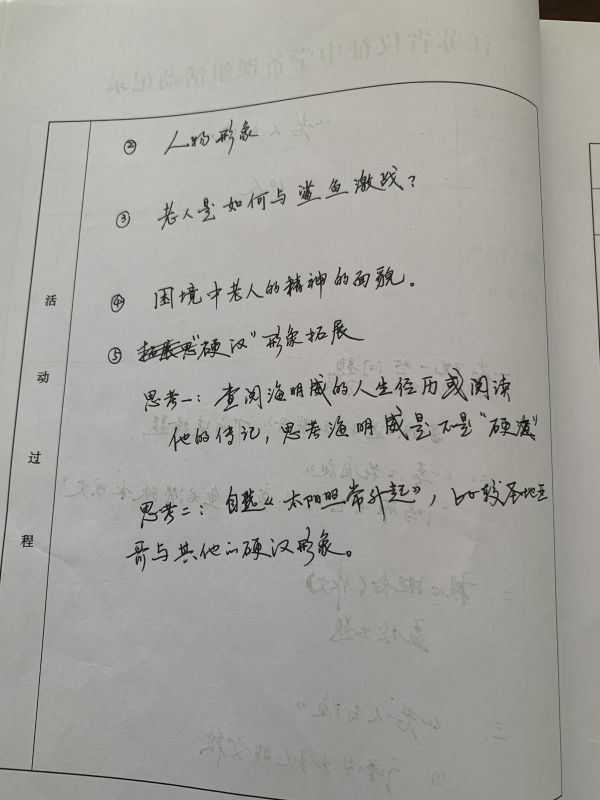 ② 人物形象
③ 老人是如何与鲨鱼激战？
④ 困境中老人的精神的面貌。
⑤ "硬汉"形象拓展
思考一：查阅海明威的人生经历或阅读
他的传记，思考海明威是不是"硬汉"
思考二：自选《太阳照常升起》，比较圣地亚
哥与其他的硬汉形象。
活
动
过
程